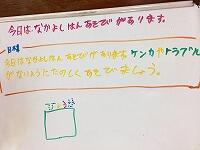 今日はなかよしはんあそびがあります。
目標
今日はなかよしはんあそびがあります。ケンカやトラブル
がないようにたのしくあそびましょう。